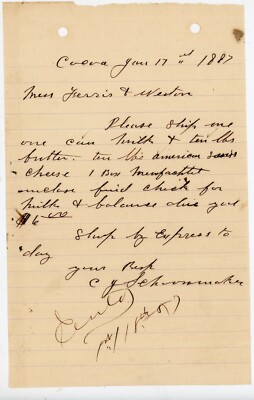 Jan 17 1887
Mess Ferris & Weston
Please ship me
one can milk & ten lbs
butter. ten lbs american
cheese 1 Box
inclose find check for
milk & balance due you
$6 00
Ship by Express to
day
your Resp
C J Schoonmaker